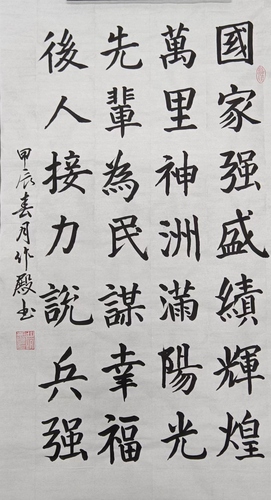 國家强盛績輝煌
萬里神洲滿陽光
先輩為民謀幸福
後人接力說兵强
甲辰春月作殿书